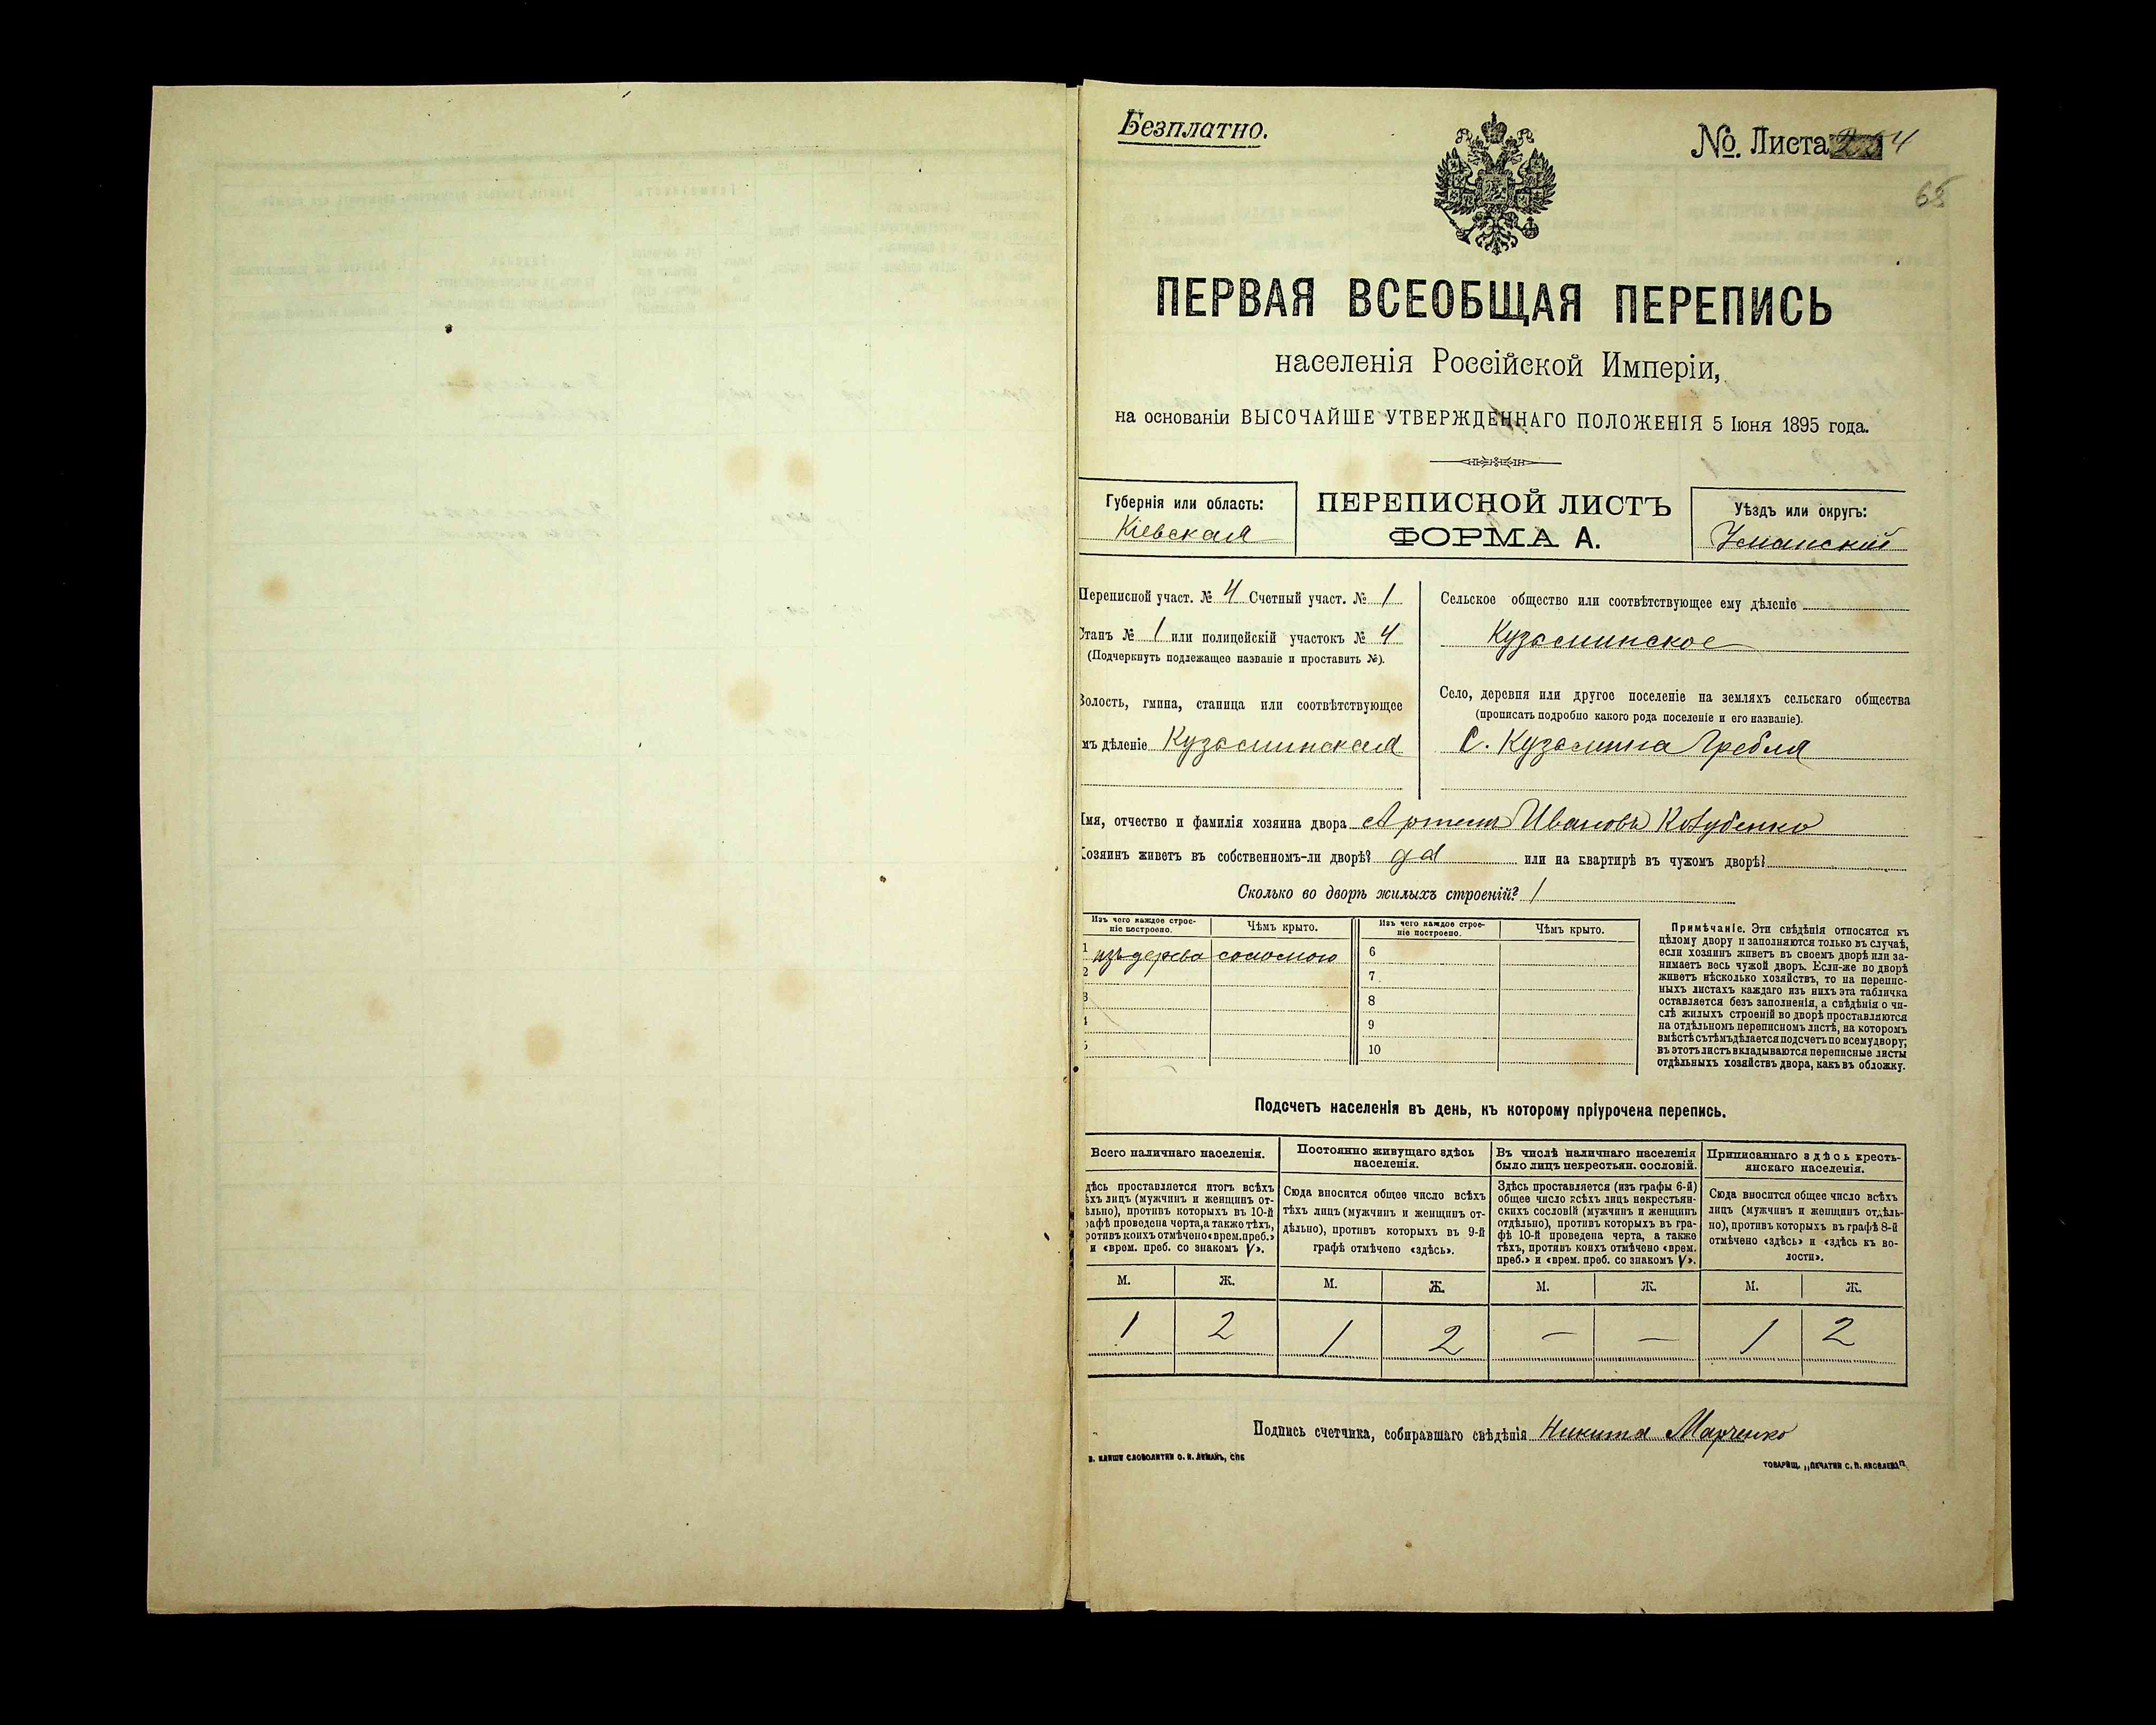 Безплатно.
№ Листа 4
65
ПЕРВАЯ ВСЕОБЩАЯ ПЕРЕПИСЬ
населенія Россійской Имперіи,
на основаніи ВЫСОЧАЙШЕ УТВЕРЖДЕННАГО ПОЛОЖЕНІЯ 5 Іюня 1895 года.
Губернія или область:
Кіевская
ПЕРЕПИСНОЙ ЛИСТЪ
ФОРМА А.
Уѣздъ или округъ:
Уманскій
Переписной участ. № 4 Счетный участ. № 1
Станъ № 1 или полицейскій участокъ № 4
(Подчеркнуть подлежащее названіе и проставить №).
Волость, гмина, станица или соотвѣтствующее
мъ дѣленіе Кузьминская
Сельское общество или соотвѣтствующее ему дѣленіе
Кузьминское
Село, деревня или другое поселеніе на земляхъ сельскаго общества
(прописать подробно какого рода поселеніе и его названіе).
С. Кузьмина Гребля
Имя, отчество и фамилія хозяина двора Артемъ Ивановъ
Хозяинъ живетъ въ собственномъ-ли дворѣ? да или на квартирѣ въ чужомъ дворѣ?
Сколько во дворѣ жилыхъ строеній? 1
Изъ чего каждое строе-
ніе построено.
Чѣмъ крыто.
Изъ чего каждое строе-
ніе построено.
Чѣмъ крыто.
1 изъ дерева соломою 6
2 7
3 8
4 9
5 10
Примѣчаніе. Эти свѣдѣнія относятся къ
цѣлому двору и заполняются только въ случаѣ,
если хозяинъ живетъ въ своемъ дворѣ или за-
нимаетъ весь чужой дворъ. Если-же во дворѣ
живетъ нѣсколько хозяйствъ, то на перепис-
ныхъ листахъ каждаго изъ нихъ эта табличка
оставляется безъ заполненія, а свѣдѣнія о чи-
слѣ жилыхъ строеній во дворѣ проставляются
на отдѣльномъ переписномъ листѣ, на которомъ
вмѣстѣ съ тѣмъ дѣлается подсчетъ по всему двору;
въ этотъ листъ вкладываются переписные листы
отдѣльныхъ хозяйствъ двора, какъ въ обложку.
Подсчетъ населенія въ день, къ которому пріурочена перепись.
Всего наличнаго населенія.
дѣсь проставляется итогъ всѣхъ
ѣхъ лицъ (мужчинъ и женщинъ от-
ѣльно), противъ которыхъ въ 10-й
рафѣ проведена черта, а также тѣхъ,
ротивъ коихъ отмѣчено «врем. преб.»
и «врем. преб. со знакомъ V».
Постоянно живущаго здѣсь
населенія.
Сюда вносится общее число всѣхъ
тѣхъ лицъ (мужчинъ и женщинъ от-
дѣльно), противъ которыхъ въ 9-й
графѣ отмѣчено «здѣсь».
Въ числѣ наличнаго населенія
было лицъ некрестьян. сословій.
Здѣсь проставляется (изъ графы 6-й)
общее число всѣхъ лицъ некрестьян-
скихъ сословій (мужчинъ и женщинъ
отдѣльно), противъ которыхъ въ гра-
фѣ 10-й проведена черта, а также
тѣхъ, противъ коихъ отмѣчено «врем.
преб.» и «врем. преб. со знакомъ V».
Приписаннаго здѣсь кресть-
янскаго населенія.
Сюда вносится общее число всѣхъ
лицъ (мужчинъ и женщинъ отдѣль-
но), противъ которыхъ въ графѣ 8-й
отмѣчено «здѣсь» и «здѣсь къ во-
лости».
М. Ж. М. Ж. М. Ж. М. Ж.
1 2 1 2 — — 1 2
Подпись счетчика, собиравшаго свѣдѣнія Никита Марченко
КЛИШЕ СЛОВОЛИТНИ О. И. ЛЕМАНЪ, СПБ
ТОВАРИЩ. „ПЕЧАТНЯ С. П. ЯКОВЛЕВА“